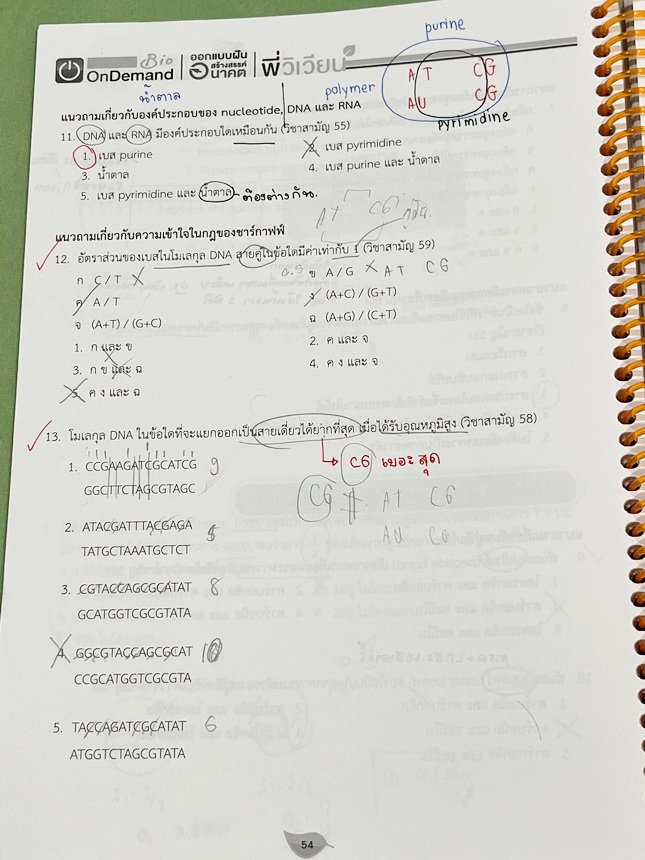 purine
Bio
OnDemand
ออกแบบฝัน
สร้างสรรค์
อนาคต
พี่วิเวียน
A T C G
A U C G
pyrimidine
น้ำตาล
polymer
แนวถามเกี่ยวกับองค์ประกอบของ nucleotide, DNA และ RNA
11. DNA และ RNA มีองค์ประกอบใดเหมือนกัน (วิชาสามัญ 55)
1. เบส purine
2. เบส pyrimidine
3. น้ำตาล
4. เบส purine และ น้ำตาล
5. เบส pyrimidine และ น้ำตาล → ต้องต่างกัน.
AT CG
แนวถามเกี่ยวกับความเข้าใจในกฎของชาร์กาฟฟ์
12. อัตราส่วนของเบสในโมเลกุล DNA สายคู่ในข้อใดมีค่าเท่ากับ 1 (วิชาสามัญ 59)
ก C / T X
ข A / G X AT CG
ค A / T
ง (A+C) / (G+T)
จ (A+T) / (G+C)
ฉ (A+G) / (C+T)
1. ก และ ข
2. ค และ จ
3. ก ข และ ฉ
4. ค ง และ จ
5. ค ง และ ฉ
13. โมเลกุล DNA ในข้อใดที่จะแยกออกเป็นสายเดี่ยวได้ยากที่สุด เมื่อได้รับอุณหภูมิสูง (วิชาสามัญ 58)
CG เยอะสุด
1. CCGAAGATCGCATCG 9
GGCTTCTAGCGTAGC
CG AT CG
AU CG
2. ATACGATTTACGAGA 5
TATGCTAAATGCTCT
3. CGTACCAGCGCATAT 8
GCATGGTCGCGTATA
4. GGCGTACCAGCGCAT 10
CCGCATGGTCGCGTA
5. TACCAGATCGCATAT 6
ATGGTCTAGCGTATA
54